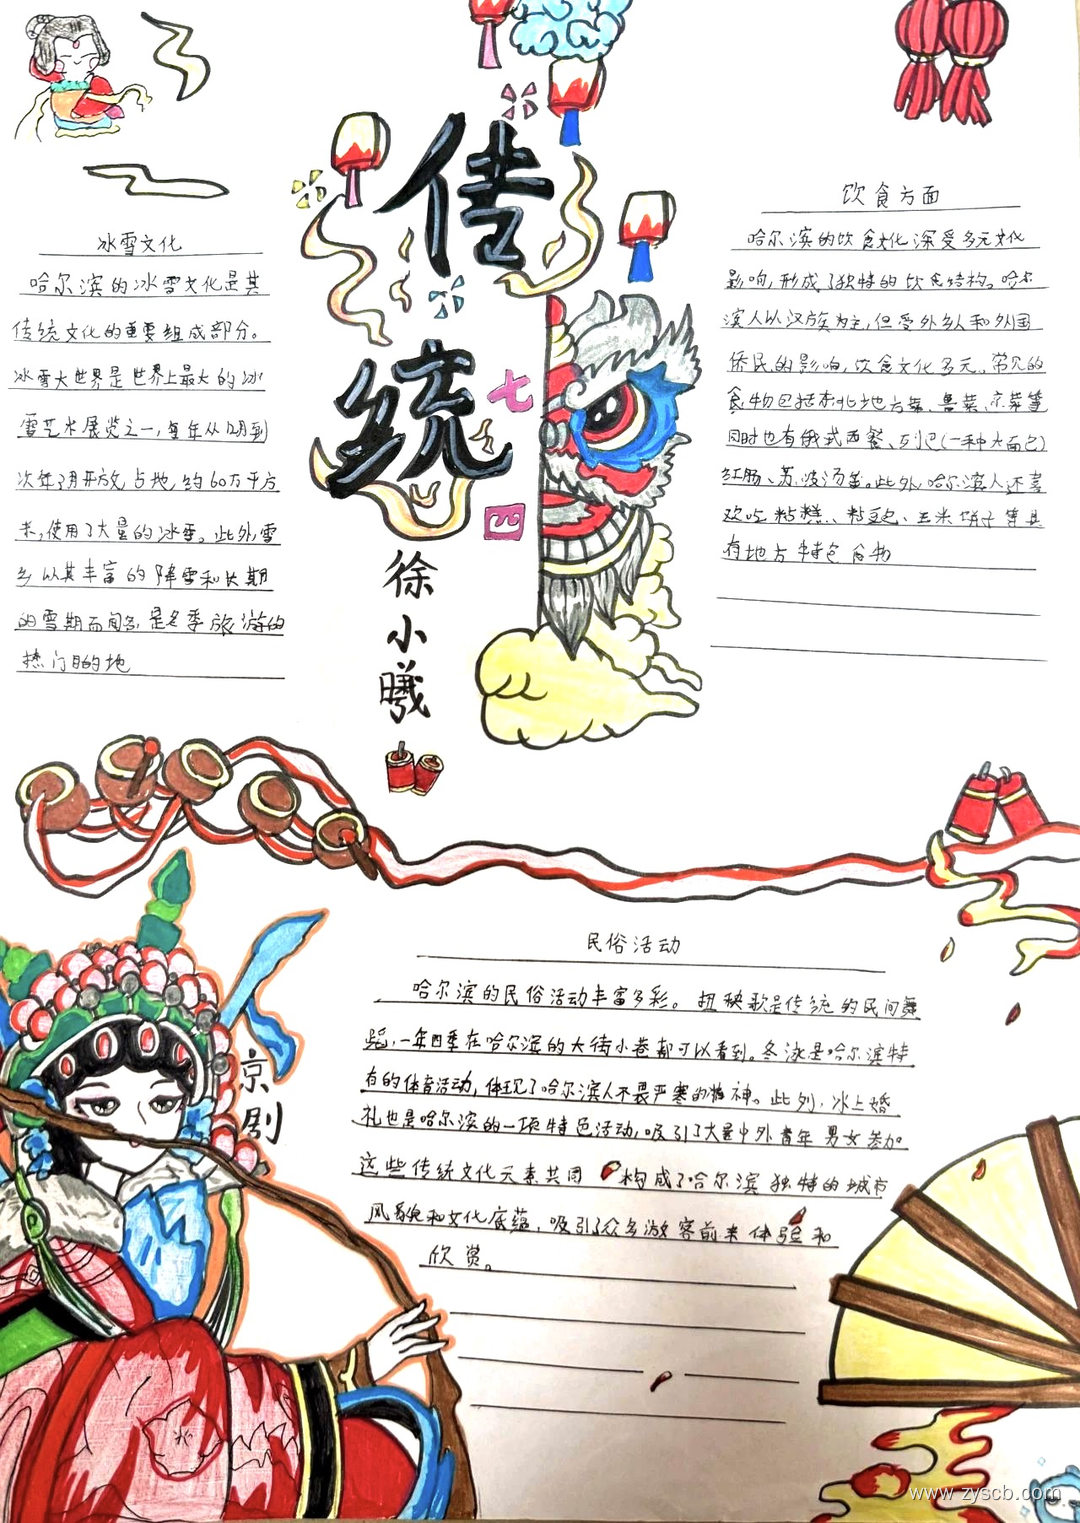 传
统
七
四
徐
小
曦
冰雪文化
哈尔滨的冰雪文化是其
传统文化的重要组成部分。
冰雪大世界是世界上最大的冰
雪艺术展览之一,每年从12月到
次年2月开放,占地约60万平方
米,使用了大量的冰雪。此外,雪
乡以其丰富的降雪和长期
的雪期而闻名,是冬季旅游的
热门目的地
饮食方面
哈尔滨的饮食文化深受多元文化
影响,形成了独特的饮食结构。哈尔
滨人以汉族为主,但受外乡人和外国
侨民的影响,饮食文化多元。常见的
食物包括东北地方菜、鲁菜、京菜等
同时也有俄式西餐、列巴(一种大面包)
红肠、苏波汤等。此外,哈尔滨人还喜
欢吃粘糕、粘豆包、玉米饼子等具
有地方特色食物
民俗活动
哈尔滨的民俗活动丰富多彩。扭秧歌是传统的民间舞
蹈,一年四季在哈尔滨的大街小巷都可以看到。冬泳是哈尔滨特
有的体育活动,体现了哈尔滨人不畏严寒的精神。此外,冰上婚
礼也是哈尔滨的一项特色活动,吸引了大量中外青年男女参加
这些传统文化元素共同构成了哈尔滨独特的城市
风貌和文化底蕴,吸引了众多游客前来体验和
欣赏。
京
剧
www.zyscb.com